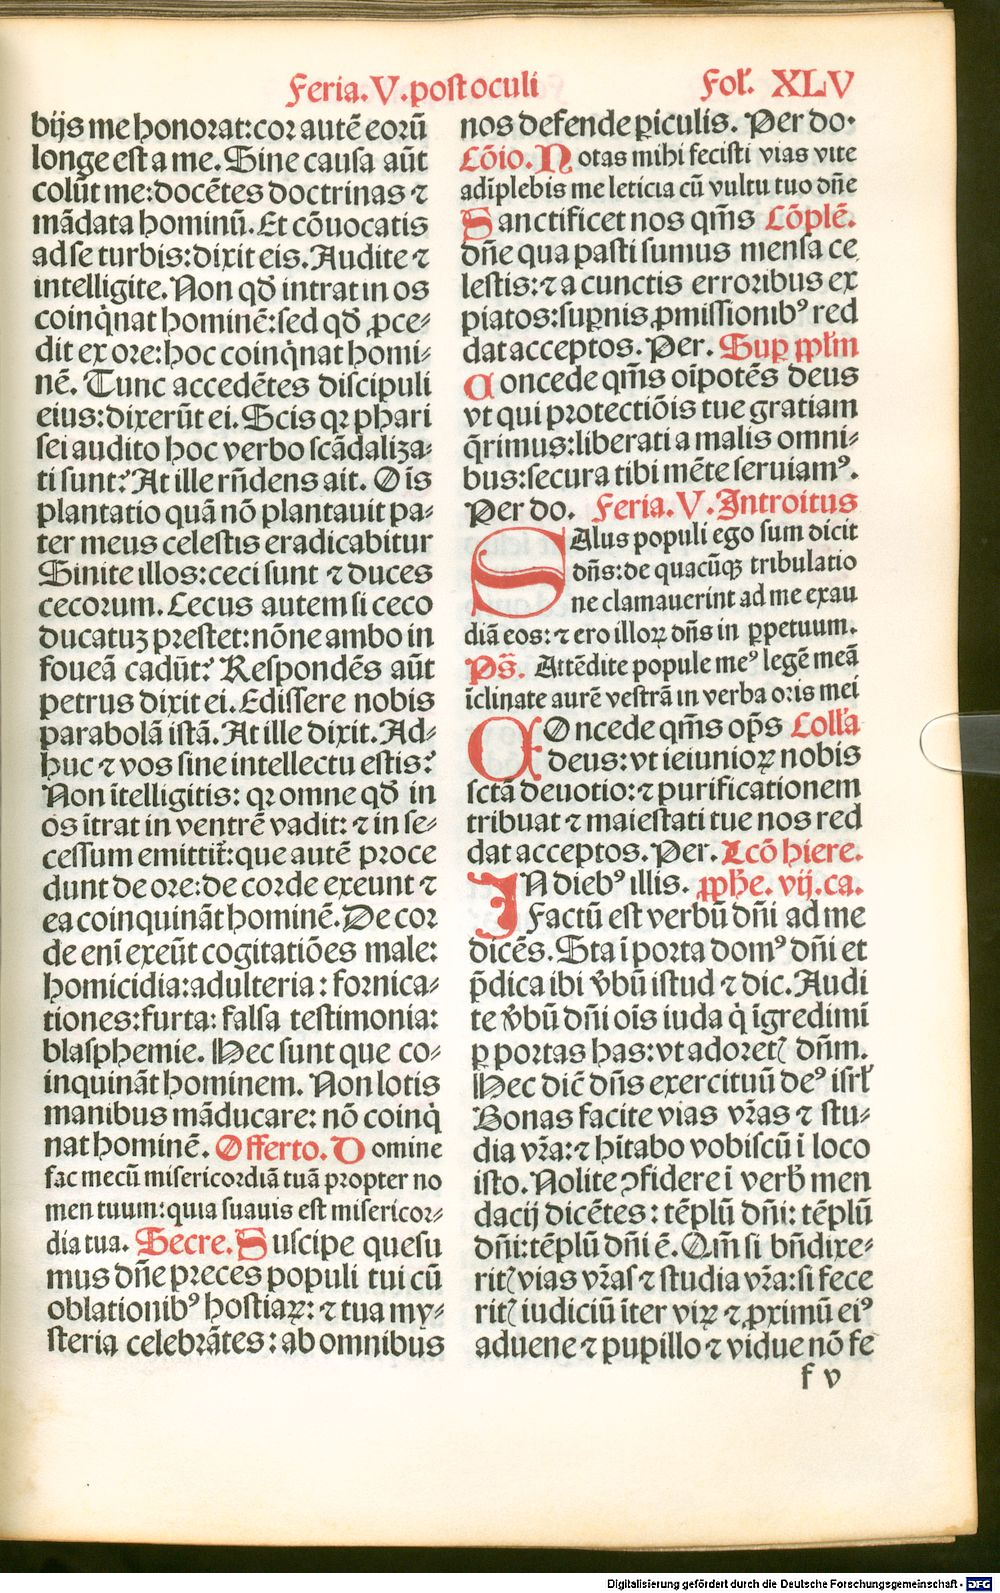 Feria. V. post oculi Fol. XLV
bijs me honorat: cor autē eorū
longe est a me. Sine causa aūt
colūt me: docētes doctrinas ⁊
mādata hominū. Et cōuocatis
ad se turbis: dixit eis. Audite ⁊
intelligite. Non qđ intrat in os
coinq̇nat hominē: sed qđ ꝓce⸗
dit ex ore: hoc coinq̇nat homi⸗
nē. Tunc accedētes discipuli
eius: dixerūt ei. Scis qꝛ phari
sei audito hoc verbo scādaliza⸗
ti sunt? At ille rn̄dens ait. Oīs
plantatio quā nō plantauit pa⸗
ter meus celestis eradicabitur
Sinite illos: ceci sunt ⁊ duces
cecorum. Cecus autem si ceco
ducatuꝫ prestet: nōne ambo in
foueā cadūt? Respondēs aūt
petrus dixit ei. Edissere nobis
parabolā istā. At ille dixit. Ad⸗
huc ⁊ vos sine intellectu estis?
Non ītelligitis: qꝛ omne qđ in
os ītrat in ventrē vadit: ⁊ in se⸗
cessum emittit̄: que autē proce
dunt de ore: de corde exeunt ⁊
ea coinquināt hominē. De cor
de enī exeūt cogitatiōes male:
homicidia: adulteria: fornica⸗
tiones: furta: falsa testimonia:
blasphemie. Hec sunt que co⸗
inquināt hominem. Non lotis
manibus māducare: nō coinq̇
nat hominē. Offerto. Domine
fac mecū misericordiā tuā propter no
men tuum: quia suauis est misericor⸗
dia tua. Secre. Suscipe quesu
mus dn̄e preces populi tui cū
oblationibꝰ hostiaꝝ: ⁊ tua my⸗
steria celebrātes: ab omnibus
nos defende ꝑiculis. Per do.
Cōio. Notas mihi fecisti vias vite
adīplebis me leticia cū vultu tuo dn̄e
Sanctificet nos qm̄s Cōplē.
dn̄e qua pasti sumus mensa ce
lestis: ⁊ a cunctis erroribus ex
piatos: suꝑnis ꝓmissionibꝰ red
dat acceptos. Per. Suꝑ pp̄lm
Concede qm̄s oīpotēs deus
vt qui protectiōis tue gratiam
q̄rimus: liberati a malis omni⸗
bus: secura tibi mēte seruiamꝰ.
Per do. Feria. V. Introitus
SAlus populi ego sum dicit
dn̄s: de quacūqꝫ tribulatio
ne clamauerint ad me exau
diā eos: ⁊ ero illoꝝ dn̄s in ꝑpetuum.
Ps̄. Attēdite popule meꝰ legē meā
īclinate aurē vestrā in verba oris mei
COncede qm̄s op̄s Coll'a
deus: vt ieiunioꝝ nobis
sctā deuotio: ⁊ purificationem
tribuat ⁊ maiestati tue nos red
dat acceptos. Per. Lcō hiere.
IN diebꝰ illis. ꝓph̄e. vij. ca.
Factū est verbū dn̄i ad me
dicēs. Sta ī porta domꝰ dn̄i et
p̄dica ibi v̄bū istud ⁊ dic. Audi
te v̄bū dn̄i oīs iuda q̇ īgredimī
ꝑ portas has: vt adoret̄ dn̄m.
Hec dic̄ dn̄s exercituū deꝰ isrł
Bonas facite vias vr̄as ⁊ stu⸗
dia vr̄a: ⁊ hītabo vobiscū ī loco
isto. Nolite ↄfidere ī verb̄ men
dacij dicētes: tēplū dn̄i: tēplū
dn̄i: tēplū dn̄i ē. Qm̄ si bn̄dixe⸗
rit̄ vias vr̄as ⁊ studia vr̄a: si fece
rit̄ iudiciū īter viꝝ ⁊ ꝓximū eiꝰ
aduene ⁊ pupillo ⁊ vidue nō fe
f v
Digitalisierung gefördert durch die Deutsche Forschungsgemeinschaft - DFG